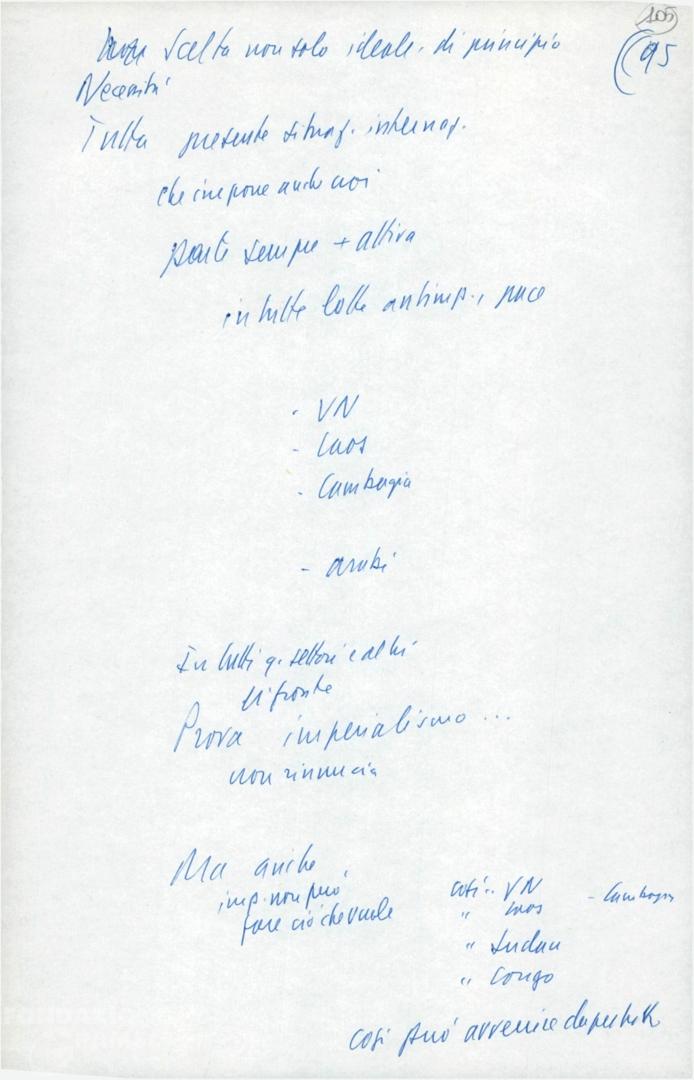 105
(95
scelta non solo ideale, di principio
Necessità
Tutta presente situaz. internaz.
che impone anche noi
parte sempre + attiva
in tutte lotte antimp., pace
- VN
- Laos
- Cambogia
- arabi
In tutti q. settori e altri
di fronte
Prova imperialismo ...
non rinuncia
Ma anche
imp. non può
fare ciò che vuole
così .. VN - Cambogia
" Laos
" Sudan
" Congo
così può avvenire